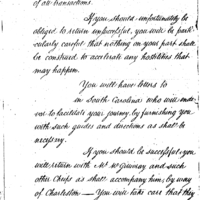 of all transactions.
If you should unfortunately be
obliged to return unsuccessful, you will be parti-
cularly careful that nothing on your part shall
be construed to accelerate any hostilities that
may happen.
You will have letters to
in South Carolina who will endea-
vor to facilitate your journey, by furnishing you
with such guides and directions as shall be
necessary.
If you should be successful you
will return with Mr. McGillivray and such
other Chiefs as shall accompany him; by way
of Charleston — You will take care that they